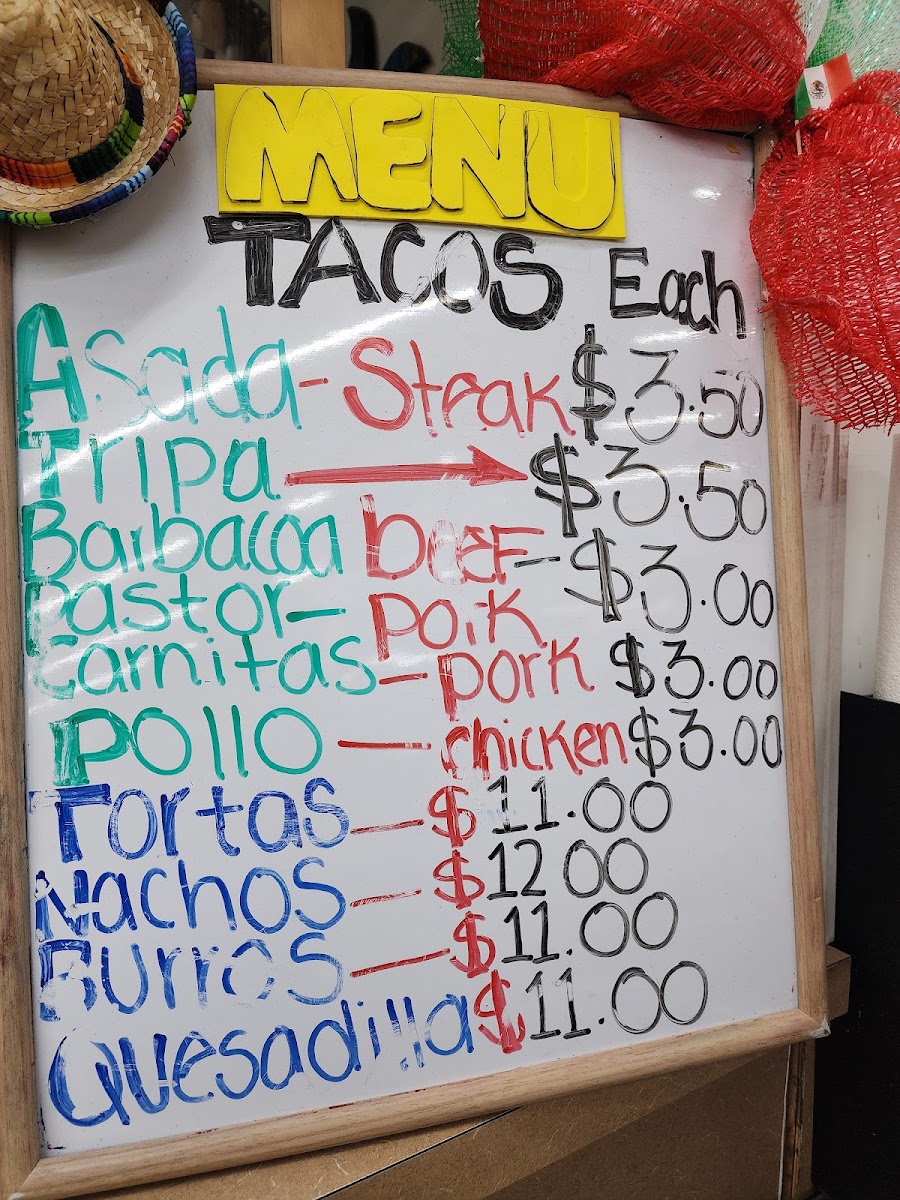 MENU
TACOS Each
Asada - Steak $3.50
Tripa → $3.50
Barbacoa bEEF - $3.00
Pastor - pork
Carnitas - pork $3.00
Pollo - chicken $3.00
Tortas - $11.00
Nachos - $12 00
Burros - $11.00
Quesadilla $11.00